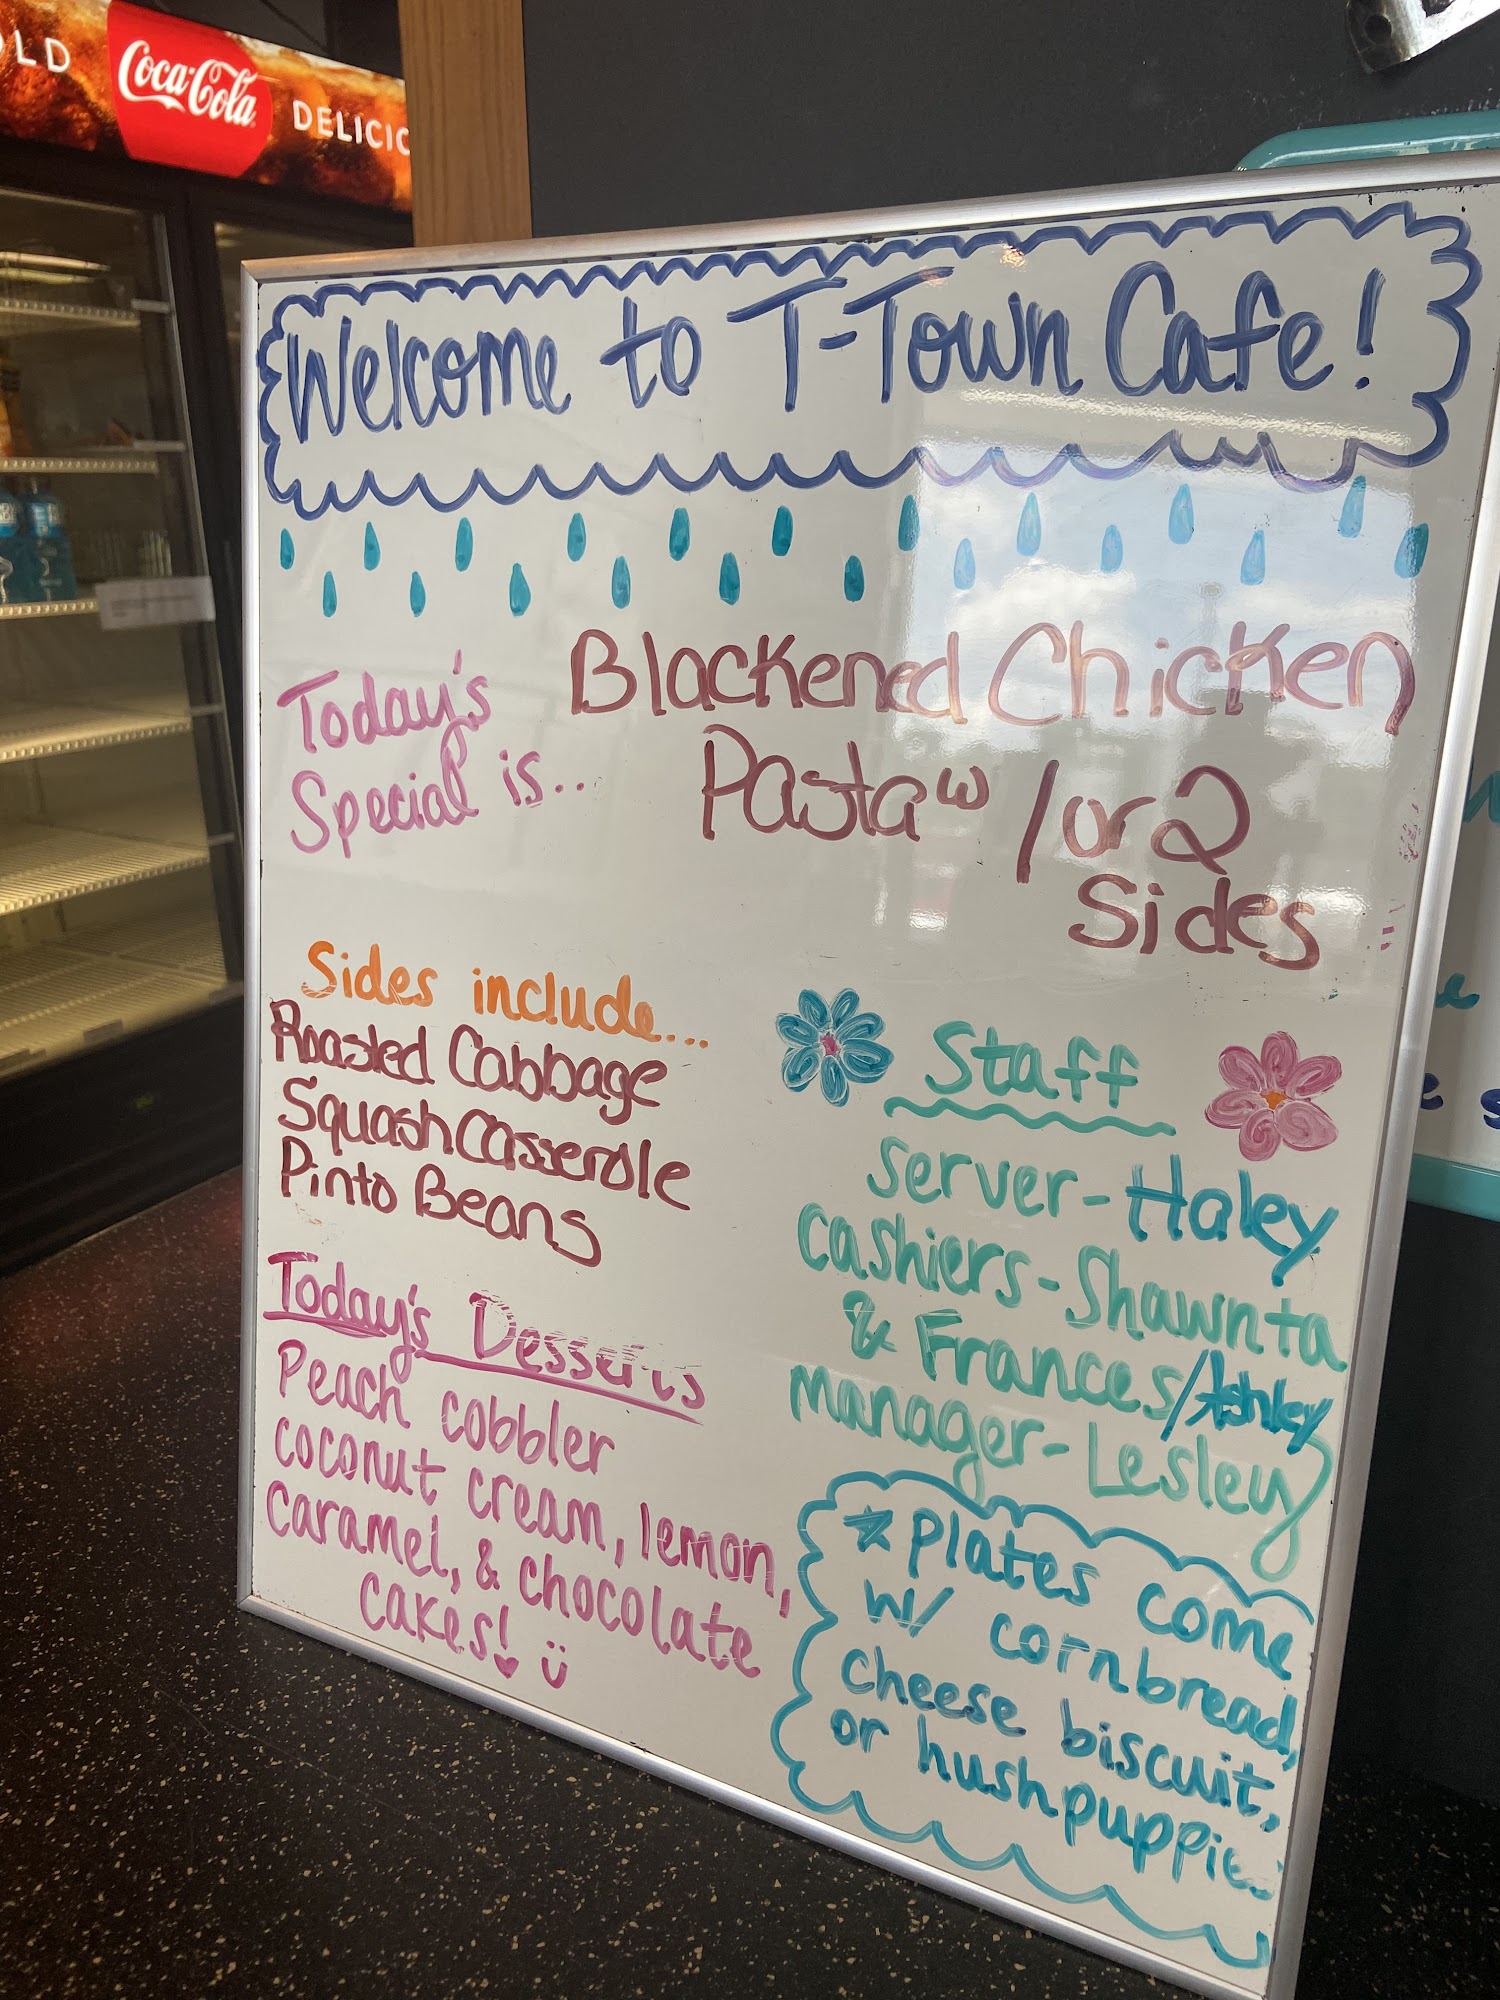 OLD
Coca-Cola
DELICIO
Welcome to T-Town Cafe!
Today's
Special is...
Blackened Chicken
Pasta w / 1 or 2
Sides
Sides include...
Roasted Cabbage
Squash Casserole
Pinto Beans
Today's Desserts
Peach cobbler
coconut cream, lemon,
caramel, & chocolate
cakes!
Staff
Server - Haley
Cashiers - Shawnta
& Frances/Ashley
manager - Lesley
plates come
w/ cornbread,
cheese biscuit,
or hushpuppie